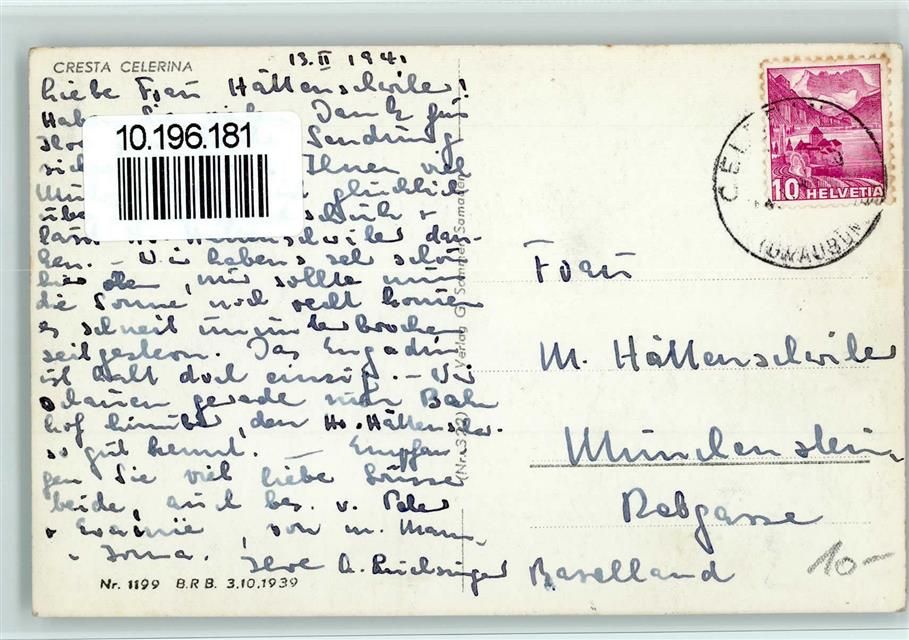 CRESTA CELERINA
13.II 1941
Liebe Frau Hättenschwiler!
Dank für
10.196.181
Sendung
Ihnen viel
glücklich
lässt Hr. Hättenschwiler dan-
ken. - Wir habens sehr schön
hier oben, nur sollte nun
die Sonne noch recht kommen
es schneit ununterbrochen
seit gestern. Das Engadin
ist halt doch einzig. - Wir
schauen gerade zum Bahn
hof hinüber, den Hr. Hättenschw.
so gut kennt. Empfan
gen Sie viel liebe Grüsse
beide, auch bes. v. Peter
+ , von m. Mann
Ihre A.
Nr. 1199 B.R.B. 3.10.1939
(Nr. Verlag G. Sommer, Samaden
10 HELVETIA
CELERINA
(GRAUBÜN
Frau
M. Hättenschwiler
Münchenstein
Rebgasse
Baselland
10-